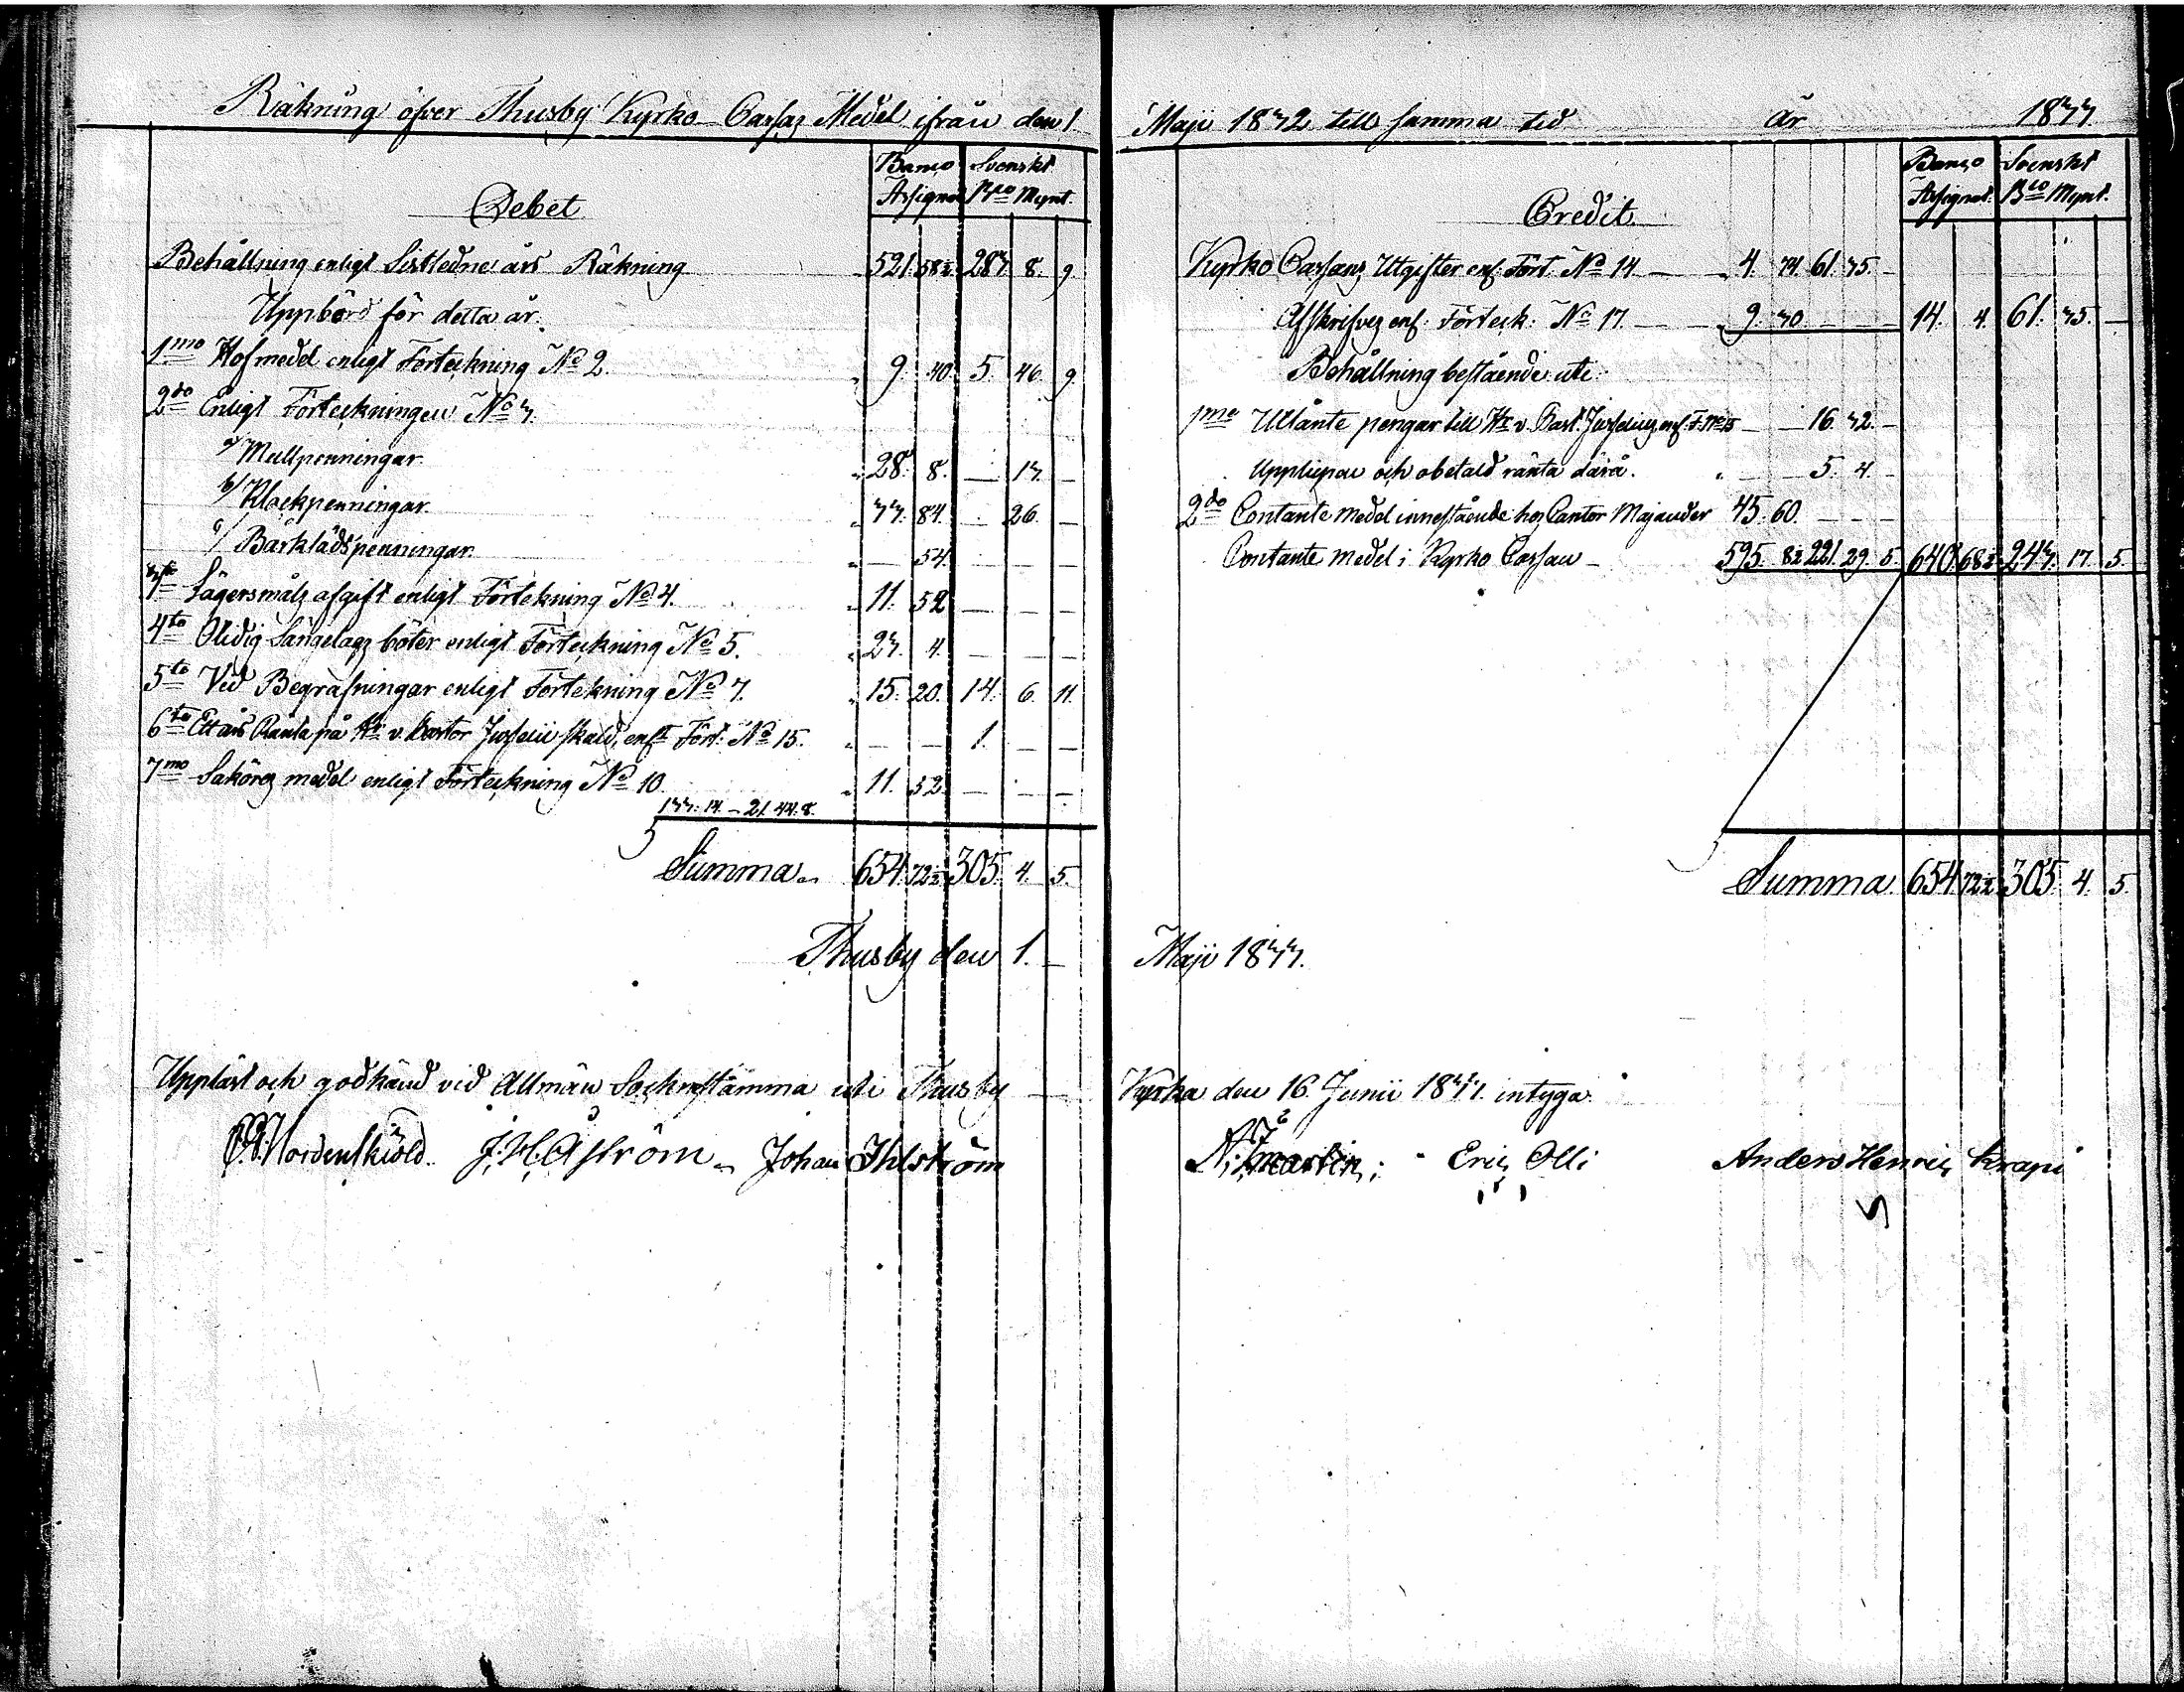 Räkning öfver Thusby Kyrko Cassas Medel ifrån den 1 Maji 1832 till samma tid År 1833.
Debet
Banco Assignat. Svenskt Bco Mynt.
Behållning enligt Sistledne års Räkning 521. 58½ 283. 8. 9
Uppbörd för detta år.
1mo Hofmedel enligt Förteckning No 2. 9. 40. 5. 46. 9
2do Enligt Förteckningen No 3.
a/ Mullpenningar 28. 8. — 13. —
b/ Klockpenningar 33. 84. — 26. —
c/ Bårklädspenningar — 54. — — —
3tio Lägersmåls afgift enligt Förtekning No 4. 11. 52 — — —
4to Olidig Sängelags böter enligt Förteckning No 5. 23. 4. — — —
5to Vid Begrafningar enligt Förtekning No 7. 15. 20. 14. 6. 11.
6to Ett års Ränta på Hr v. Pastor skuld, enlt Fört. No 15. — — 1. — —
7mo Saköres medel enligt Förteckning No 10. 11. 52. — — —
133. 14. — 21. 44. 8.
Summa 654. 72½ 305. 4. 5.
Thusby den 1.
Uppläst och godkänd vid Allmän Socknestämma uti Thusby
Nordenskiöld J. H. Åström Johan Ihlström
Credit
Banco Assignat. Svenskt Bco Mynt.
Kyrko Cassans Utgifter enl. Fört. No 14 — 4. 74. 61. 35. —
Afskrifves enl. Förteck. No 17. — 9. 30 — 14. 4. 61. 35. —
Behållning bestående uti:
1mo Utlånte pengar till Hr v. Past. enl. F. No 15 — 16. 32. —
Upplupen och obetald ränta därå. — 5. 4. —
2do Contante medel innestående hos Cantor Majander 45. 60. — — —
Contante medel i Kyrko Cassan — 595. 8½ 221. 29. 5. 640. 68½ 243. 17. 5.
Summa 654. 72½ 305. 4. 5.
Maji 1833.
Kyrka den 16 Junii 1833. intyga
Eric Olli Anders Henric Krapi